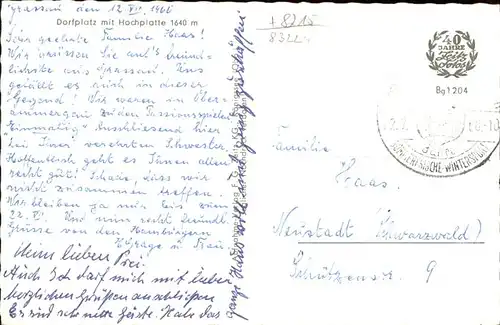 Grassau den 12. VII. 1960
Dorfplatz mit Hochplatte 1640 m
Sehr geehrte Familie Haas!
Wir grüssen Sie auf's freund-
lichste aus Grassau. Uns
gefällt es auch in dieser
Gegend! Wir waren in Ober-
ammergau zu den Passionsspielen
Einmalig! Anschliessend hier
bei Ihrer verehrten Schwester.
Hoffentlich geht es Ihnen allen
recht gut! Schade, dass wir
nicht zusammen treffen.
Wir bleiben ja nur bis zum
22. VII. Und nun recht freundl.
Grüsse von den Hamburgern
u. Frau
Meine lieben
Auch Ich darf mich mit lieben
herzlichen Grüßen anschließen
Es sind sehr nette Gäste. Habe das
ganze Haus voll
+8215
8322
40
JAHRE
Bg 1 204
Familie
Haas
Neustadt (Schwarzwald)
Schützenstr. 9